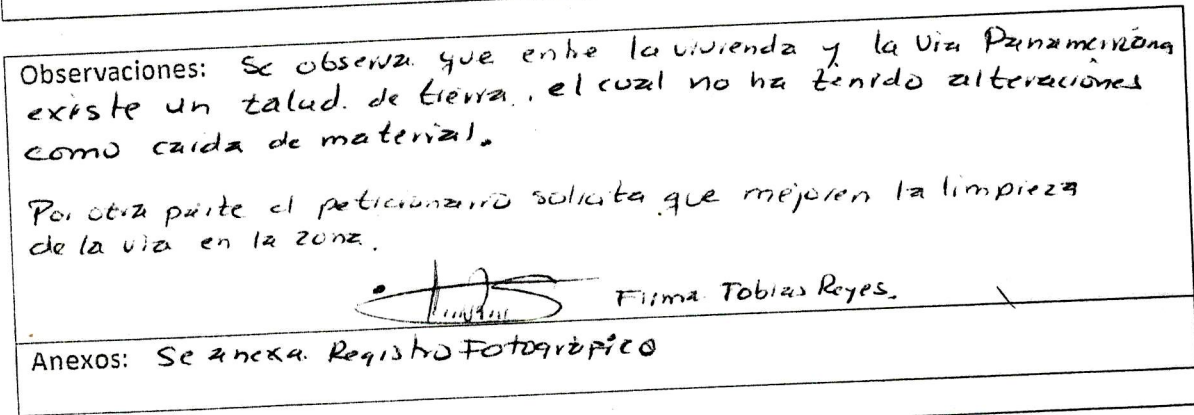 Observaciones: Se observa que entre la vivienda y la Via Panamericana
existe un talud. de tierra, el cual no ha tenido alteraciones
como caida de material.
Por otra parte el peticionario solicita que mejoren la limpieza
de la via en la zona.
Firma Tobias Reyes.
Anexos: Se anexa. Registro Fotográfico